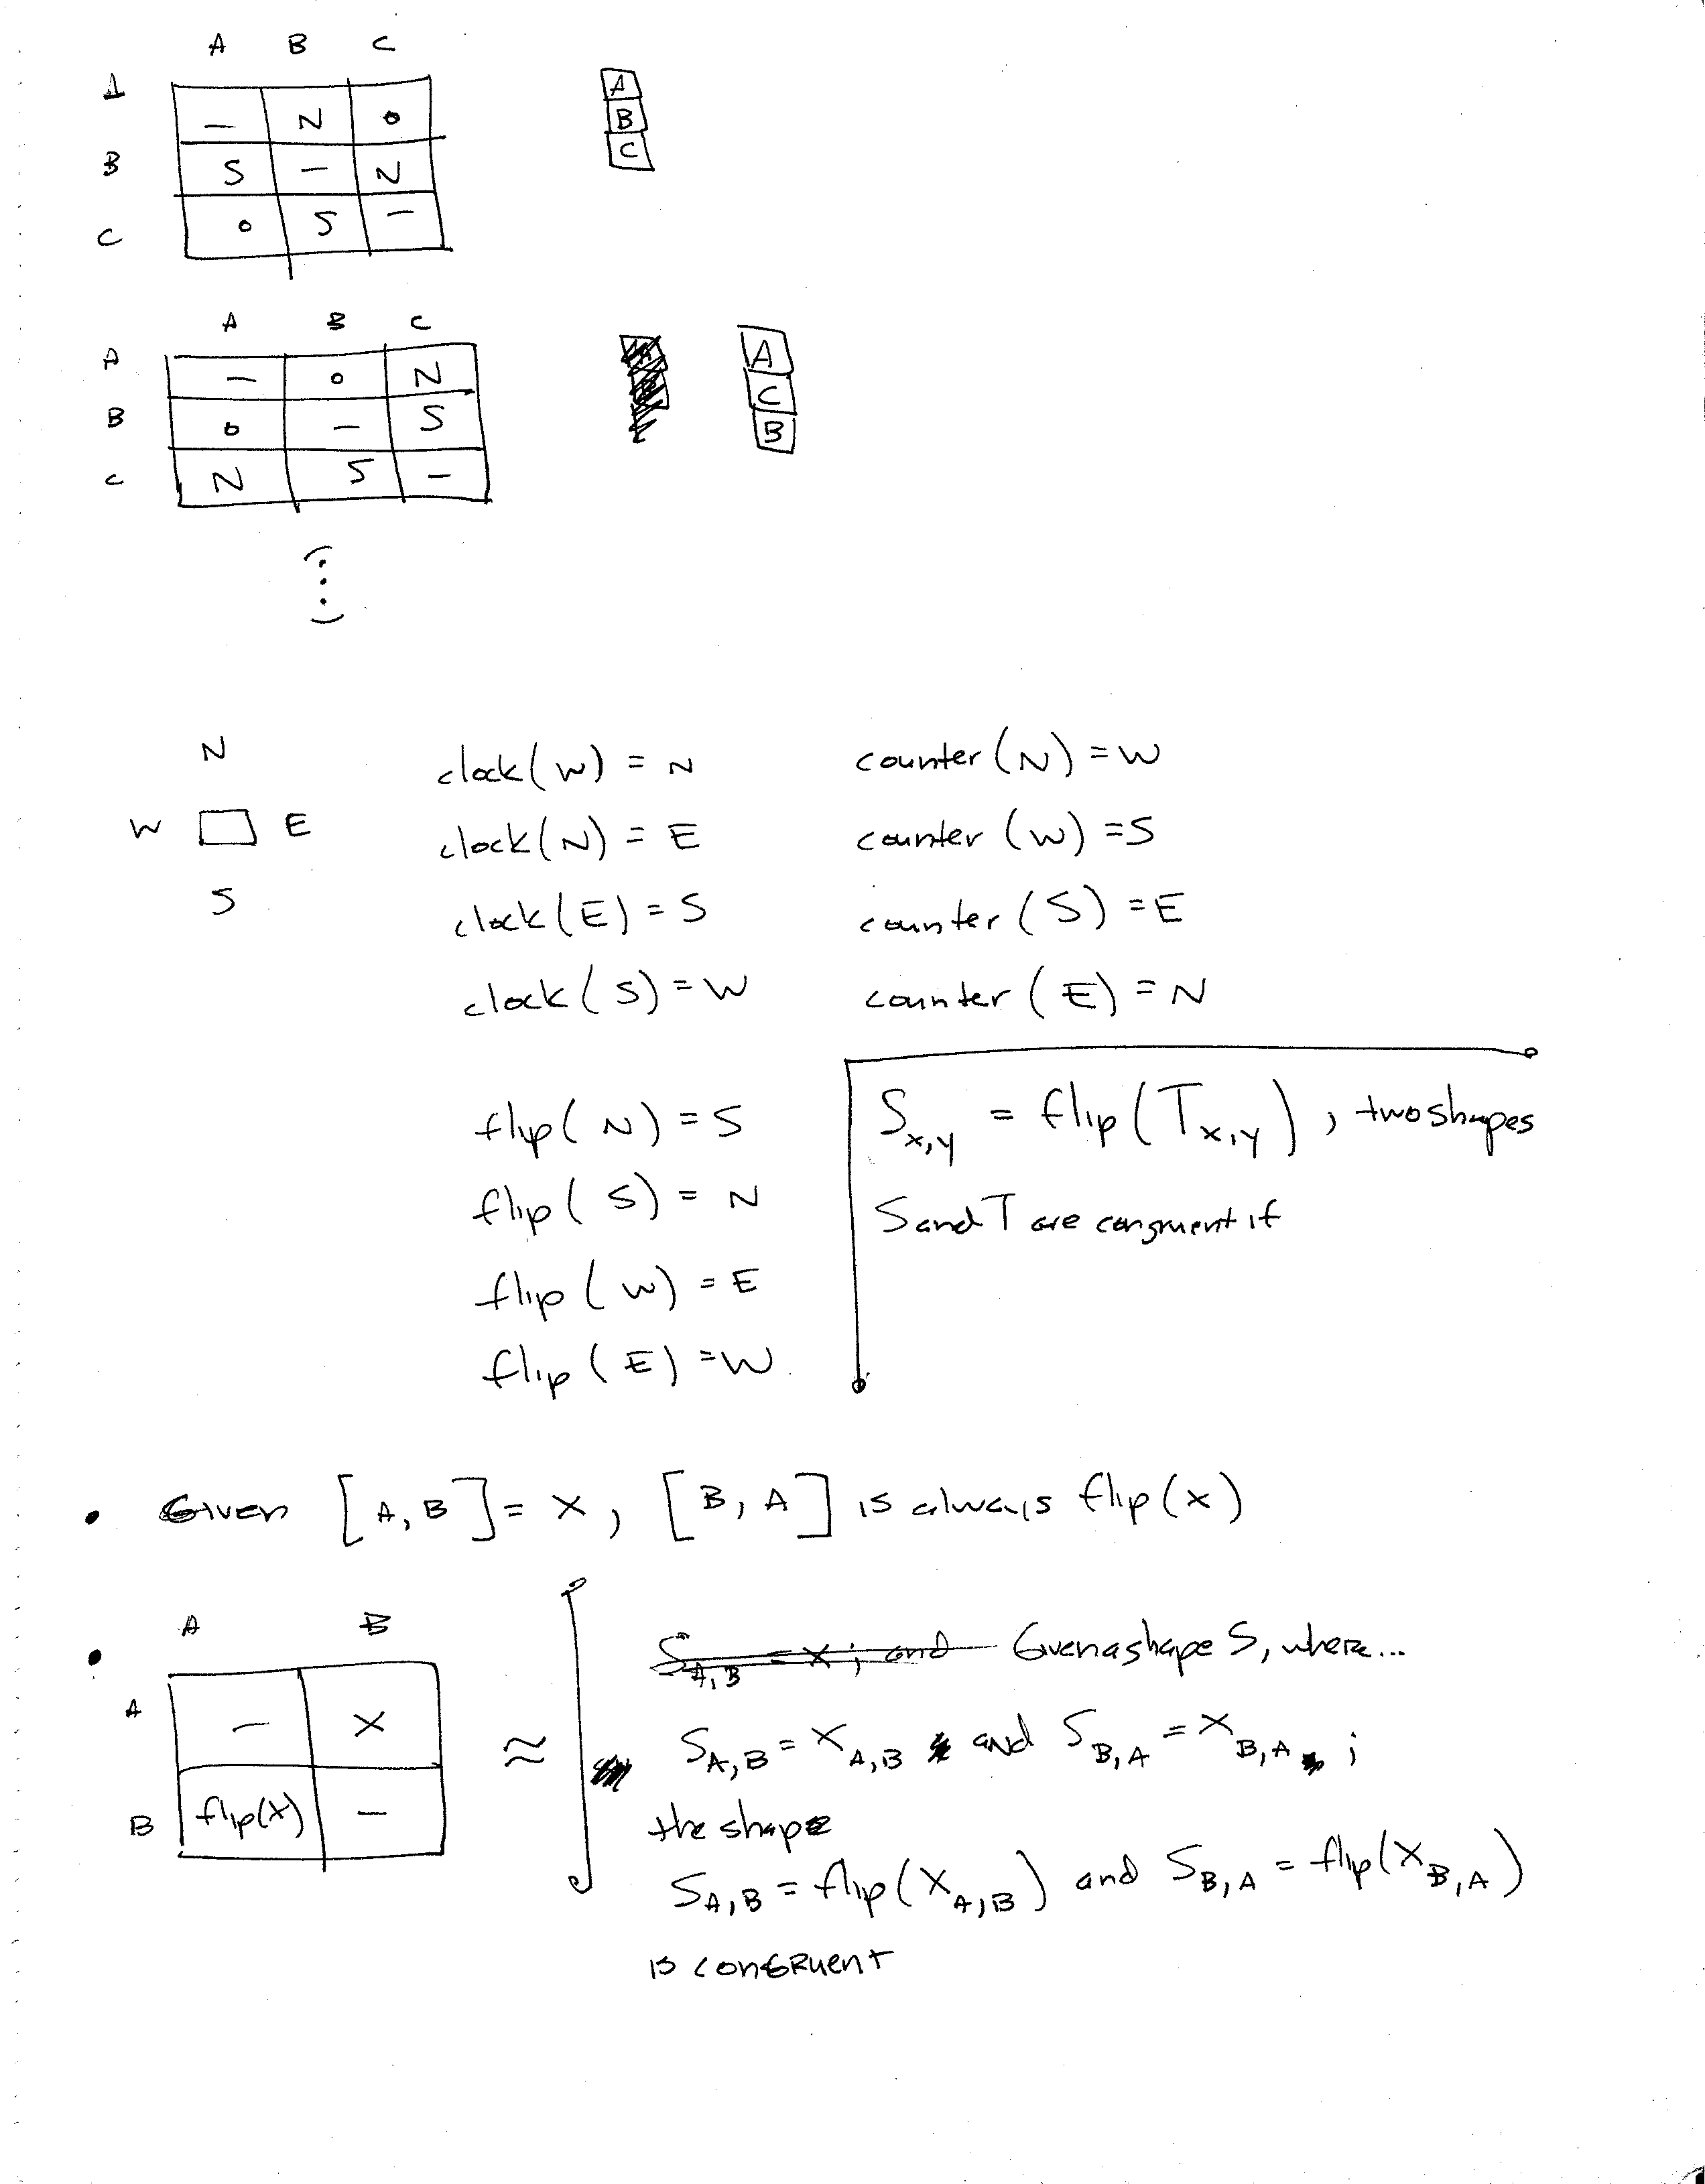 A B C
A — N 0
B S — N
C 0 S —
A
B
C
A B C
A — 0 N
B 0 — S
C N S —
A
C
B
(...)
N
W E
S
clock(W) = N
clock(N) = E
clock(E) = S
clock(S) = W
counter(N) = W
counter(W) = S
counter(S) = E
counter(E) = N
flip(N) = S
flip(S) = N
flip(W) = E
flip(E) = W
S x,y = flip(T x,y), two shapes
S and T are congruent if
• Given [A, B] = X, [B, A] is always flip(x)
•
A B
A — X
B flip(X) —
≈
S A,B = X; and Given a shape S, where...
S A,B = X A,B and S B,A = X B,A ;
the shape
S A,B = flip(X A,B) and S B,A = flip(X B,A)
is congruent